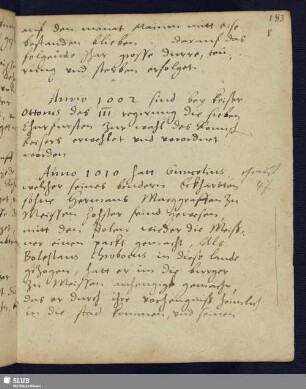 183
8
auf den monat Mainen mitt eise
bestanden blieben darauf das
folgende Jhar grosse durre, teu-
rung und sterben erfolget.
Anno 1002 sind bey keiser
Ottonis des III regirung die sieben
Churfursten zur wahl des Romisch
keisers erwehlet und verordnet
worden
Anno 1010 hatt Guncelinus
welcher seines bruders Eckhartten
söhne Hermans Marggraffen zu
Meissen hohster feind gewesen,
mitt den Polen wieder die Meiß-
ner einen packt gemacht, Als
Boleslaus Chrobrus in diese lande
gezogen, hatt er im die burger
zu Meissen anhengig gemacht,
das er durch ihre verhengnuß heimlich
in die stad kommen, und seinen
47
SLUB